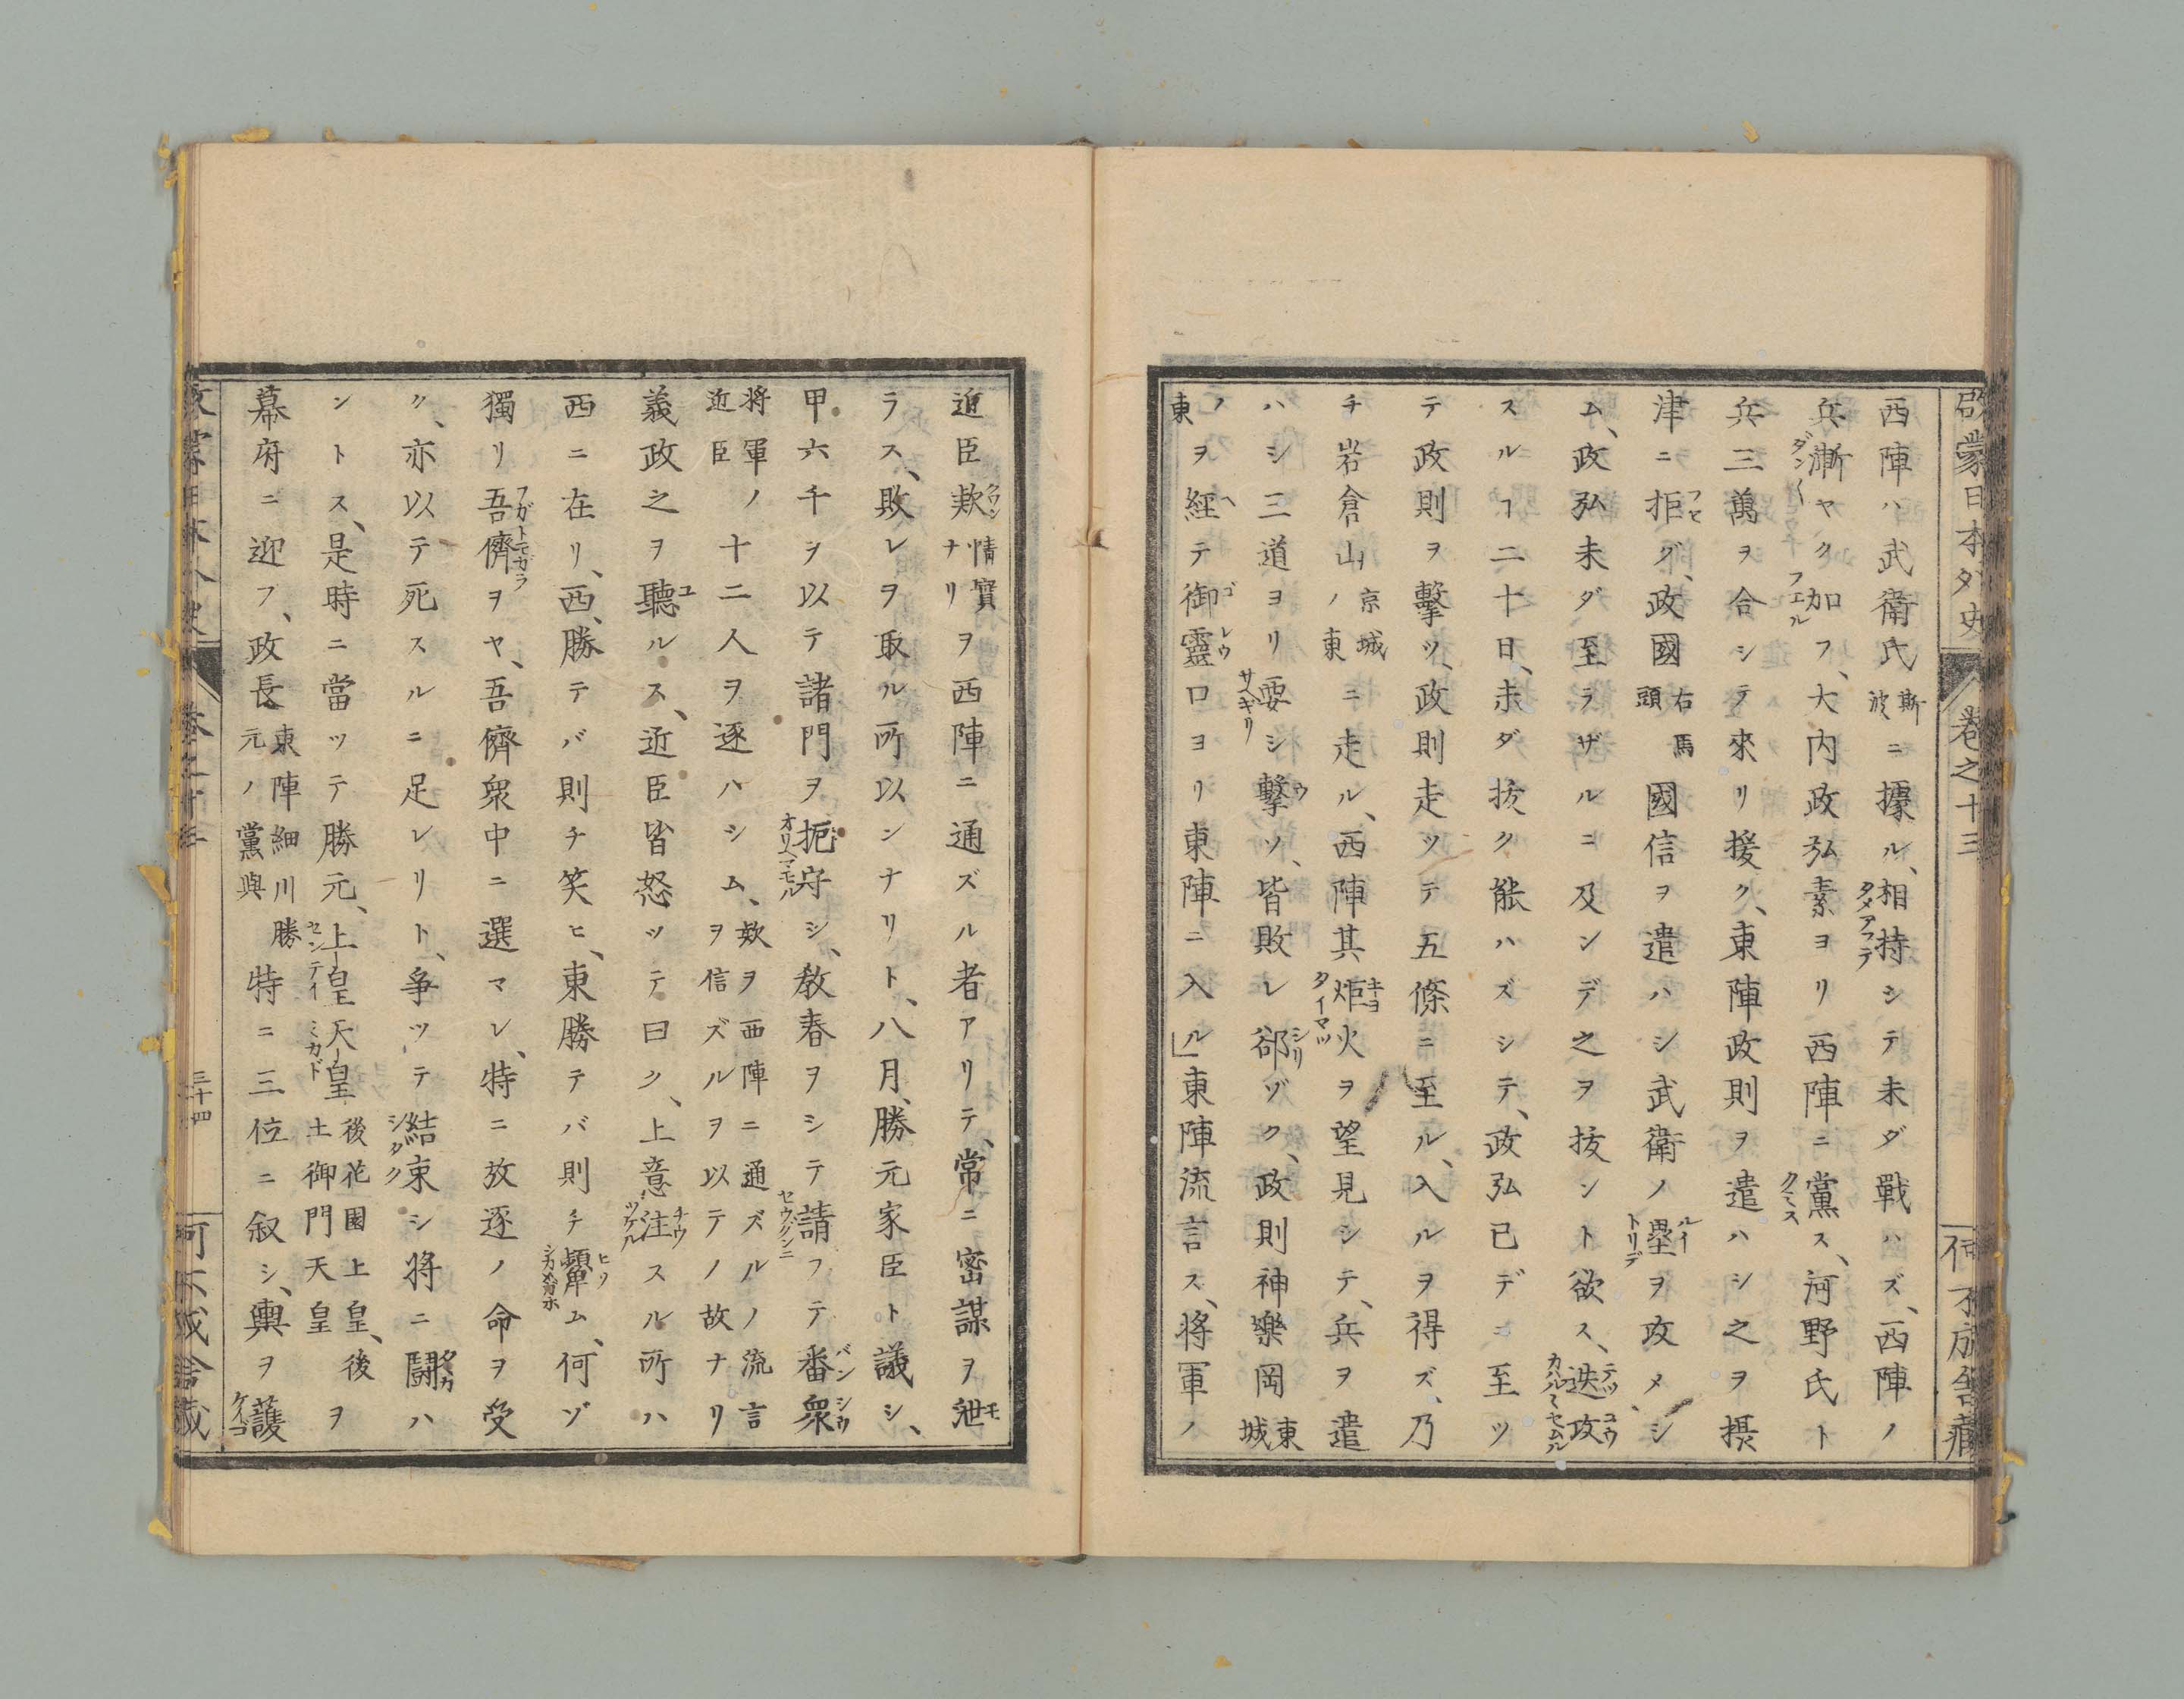 啓蒙日本外史 卷之十三 何不成舍藏
西陣ハ武衛氏斯波ニ據ル、相持シテ未ダ戰ハズ、西陣ノ
兵漸ヤク加フ、大内政弘素ヨリ西陣ニ黨ス、河野氏ト
兵三萬ヲ合シテ來リ援ク、東陣政則ヲ遣ハシ之ヲ摂
津ニ拒グ、政國右馬頭國信ヲ遣ハシ武衛ノ壘ヲ攻メシ
ム、政弘未ダ至ラザルニ及ンデ之ヲ抜ント欲ス、迭攻
スルヿ二十日、未ダ抜ク能ハズシテ、政弘已デニ至ツ
テ政則ヲ擊ツ、政則走ツテ五條ニ至ル、入ルヲ得ズ、乃
チ岩倉山京城ノ東ニ走ル、西陣其炬火ヲ望見シテ、兵ヲ遣
ハシ三道ヨリ要シ擊ツ、皆敗レ郤ゾク、政則神樂岡東城
ノ東ヲ經テ御靈口ヨリ東陣ニ入ル」東陣流言ス、将軍ノ
近臣欵情實ナリヲ西陣ニ通ズル者アリテ、常ニ密謀ヲ泄
ラス、敗レヲ取ル所以ンナリト、八月、勝元家臣ト議シ、
甲六千ヲ以テ諸門ヲ扼守シ、敎春ヲシテ請フテ番衆
将軍ノ近臣十二人ヲ逐ハシム、欵ヲ西陣ニ通ズルノ流言ヲ信ズルヲ以テノ故ナリ
義政之ヲ聽ルス、近臣皆怒ツテ曰ク、上意注スル所ハ
西ニ在リ、西勝テバ則チ笑ヒ、東勝テバ則チ顰ム、何ゾ
獨リ吾儕ヲヤ、吾儕衆中ニ選マレ、特ニ放逐ノ命ヲ受
ク、亦以テ死スルニ足レリト、爭ツテ結束シ将ニ鬪ハ
ントス、是時ニ當ツテ勝元、上皇天皇後花園上皇、後土御門天皇ヲ
幕府ニ迎フ、政長東陣細川勝元ノ黨與特ニ三位ニ叙シ、輿ヲ護
卷之十三 三十四 何不成舍藏